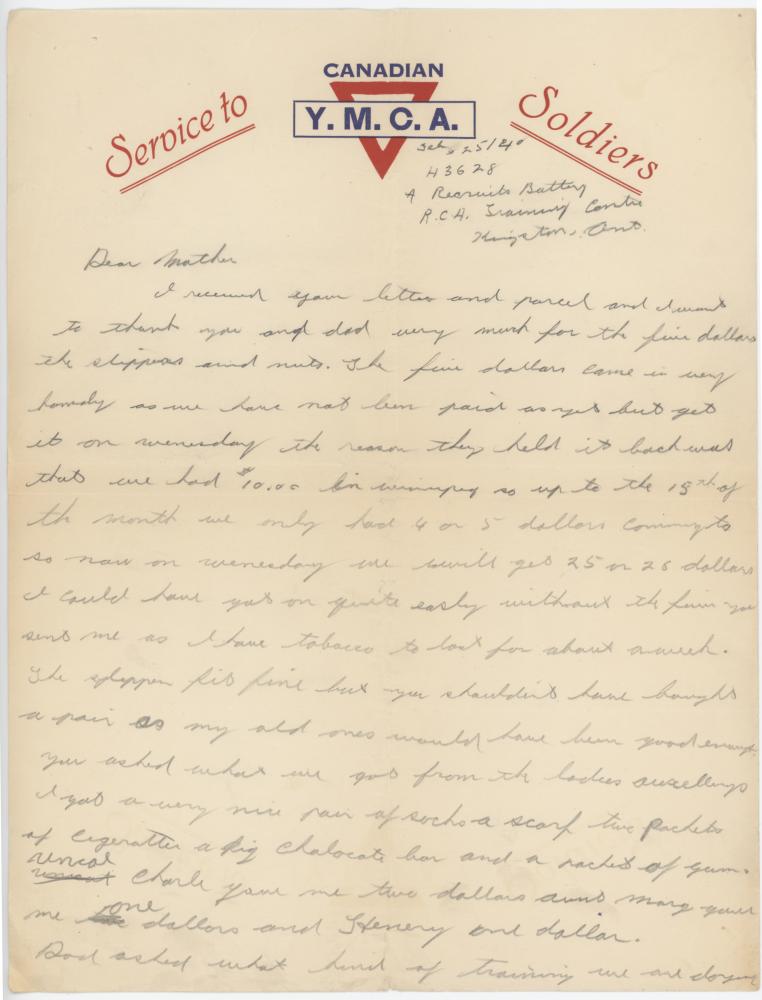 CANADIAN
Service to Y. M. C. A. Soldiers
25/40
43628
A Recruits Battery
R.C.A. Training Centre
Kingston, Ont.
Dear Mother
I received your letter and parcel and I want
to thank you and dad very much for the five dollars
the slippers and nuts. The five dollars came in very
handy as we have not been paid as yet but get
it on wenesday the reason they held it back was
that we had $10.00 in winnipeg so up to the 15th of
the month we only had 4 or 5 dollars coming to
so now on wenesday we will get 25 or 26 dollars
I could have got on quite easly without the five you
sent me as I have tobacco to last for about a week.
The slippers fit fine but you shouldn't have bought
a pair as my old ones would have been good enough.
You asked what we got from the ladies
I got a very nice pair of socks a scarf two packets
of cigeratter a big chalocate bar and a packet of gum.
uncal Charle gave me two dollars aunt mary gave
me one dollars and Henery one dollar.
Dad asked what kind of training we are doying